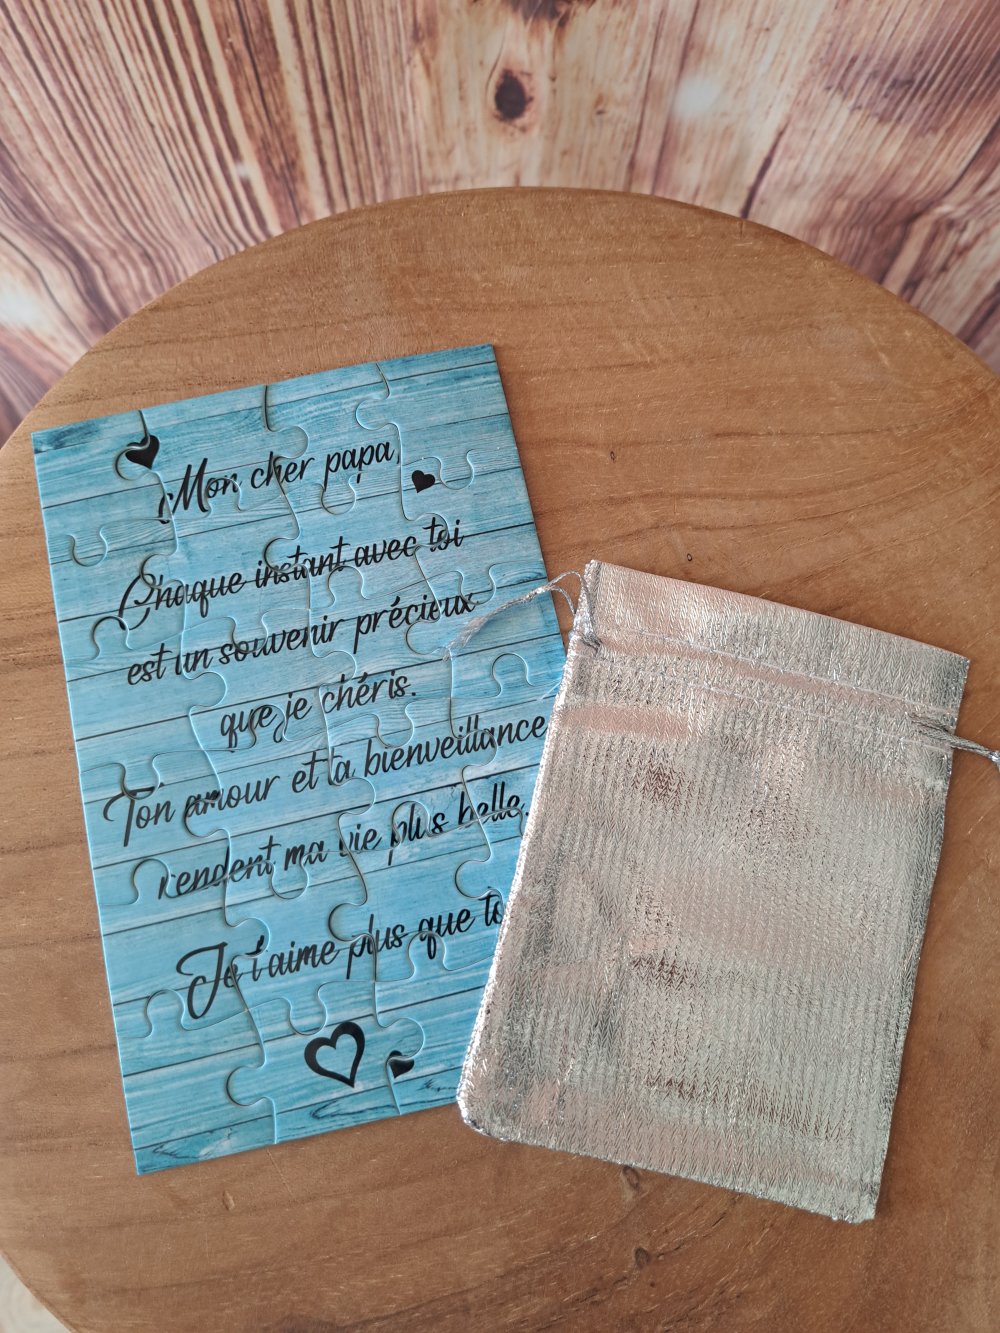 Mon cher papa,
Chaque instant avec toi
est un souvenir précieux
que je chéris.
Ton amour et ta bienveillance
rendent ma vie plus belle.
Je t'aime plus que to